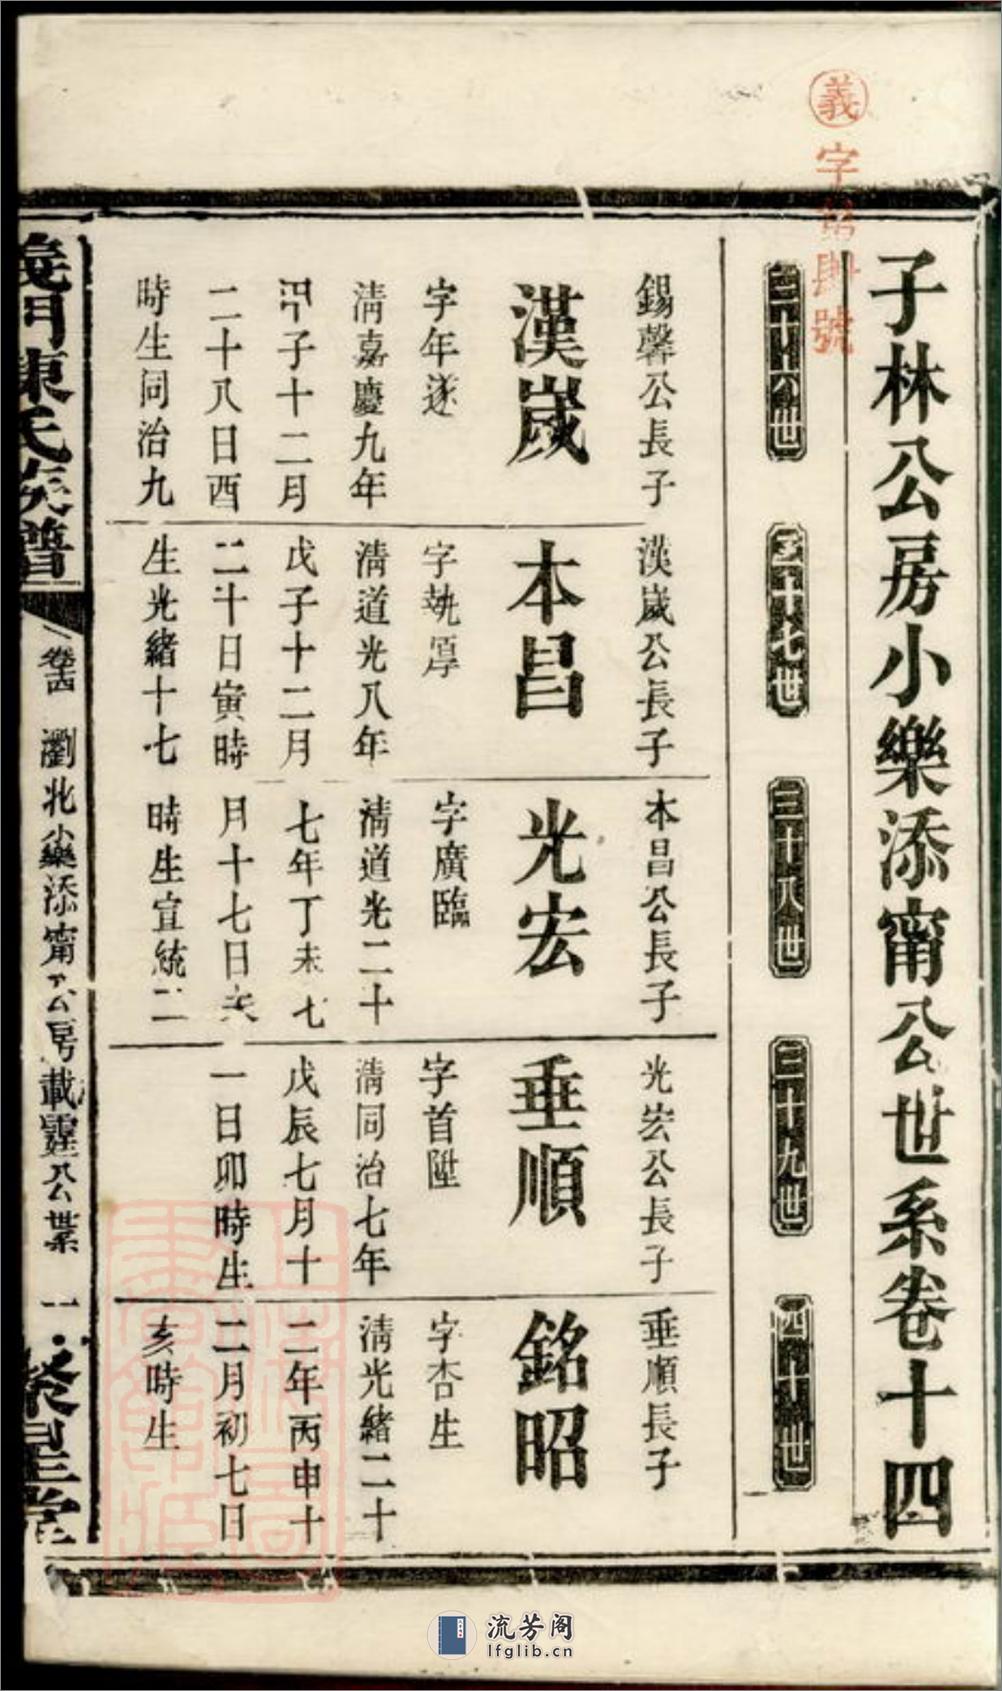 子林公房小樂添甯公世系卷十四
義字第肆號
三十六世
三十七世
三十八世
三十九世
四十世
錫馨公長子
漢嵗
字年遂
清嘉慶九年
甲子十二月
二十八日酉
時生同治九
漢嵗公長子
本昌
字執厚
清道光八年
戊子十二月
二十日寅時
生光緒十七
本昌公長子
光宏
字廣臨
清道光二十
七年丁未七
月十七日亥
時生宣統二
光宏公長子
垂順
字首陞
清同治七年
戊辰七月十
一日卯時生
垂順長子
銘昭
字杏生
清光緒二十
二年丙申十
二月初七日
亥時生
義門陳氏族譜
卷十四
瀏北小樂添甯公房載霆公世系
一
聚星堂
流芳阁
lfglib.cn